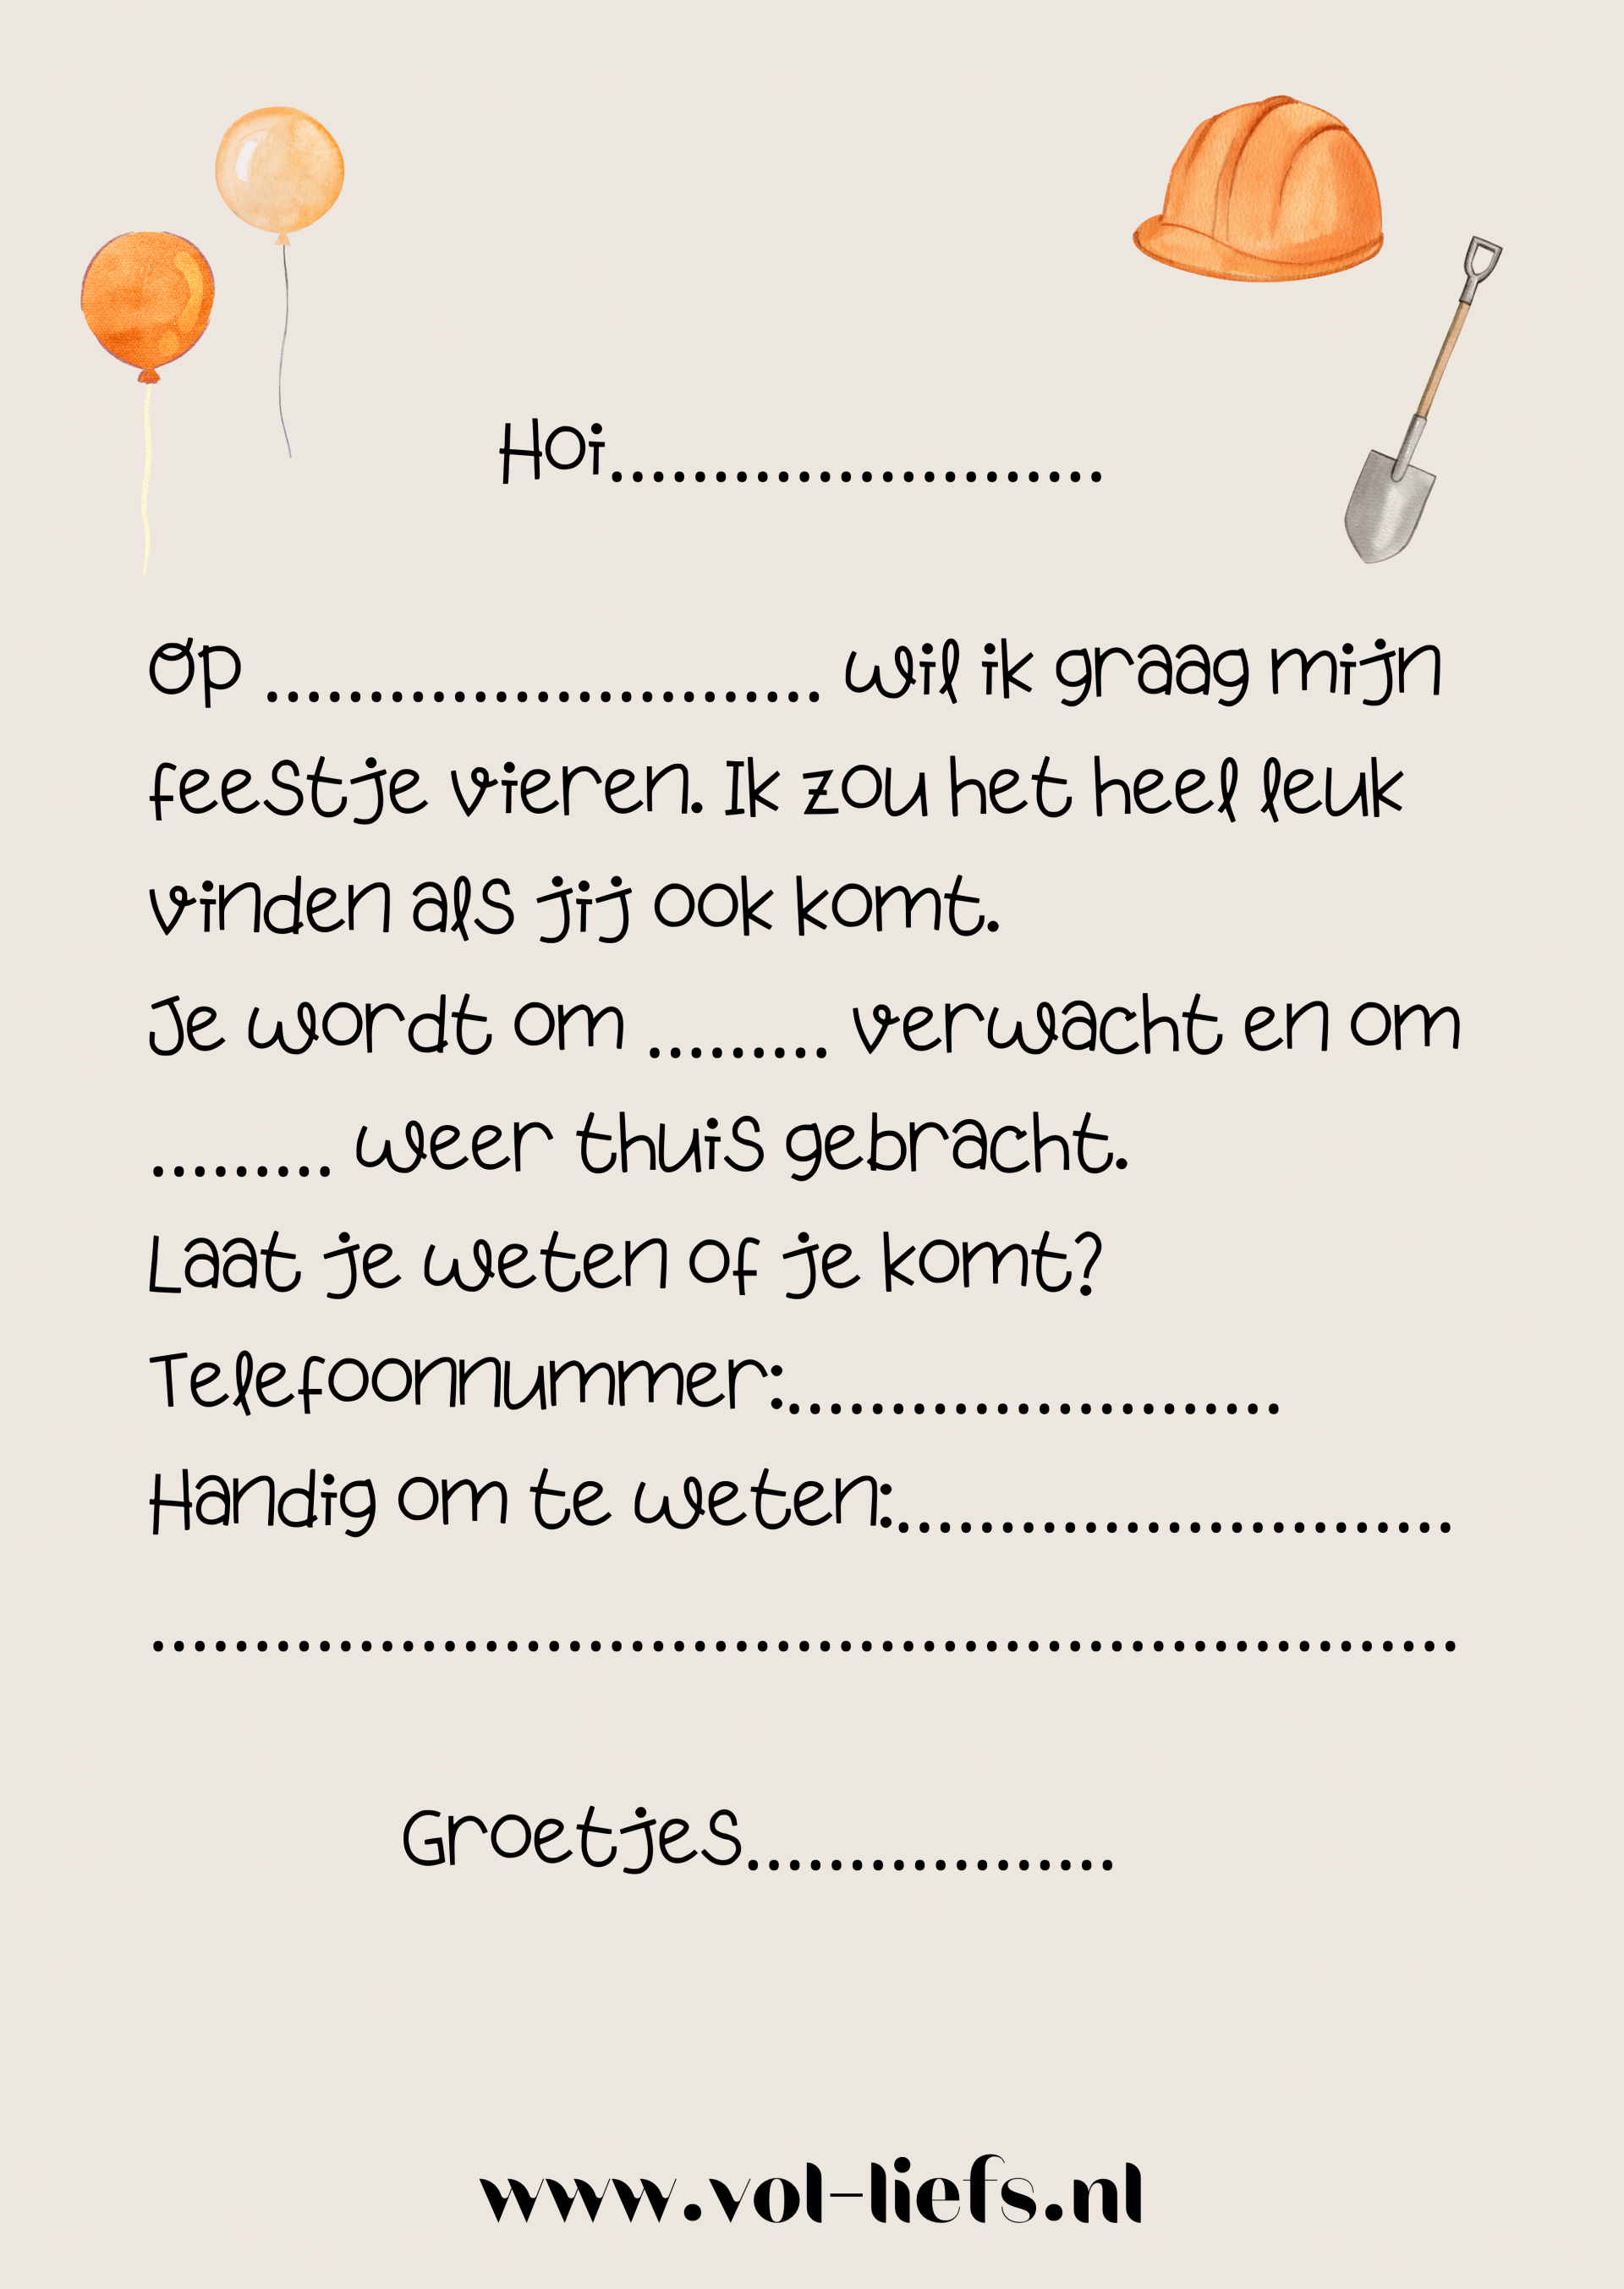 Hoi........................
Op ........................... wil ik graag mijn
feestje vieren. Ik zou het heel leuk
vinden als jij ook komt.
Je wordt om ......... verwacht en om
......... weer thuis gebracht.
Laat je weten of je komt?
Telefoonnummer:........................
Handig om te weten:...........................
...............................................................
Groetjes..................
www.vol-liefs.nl